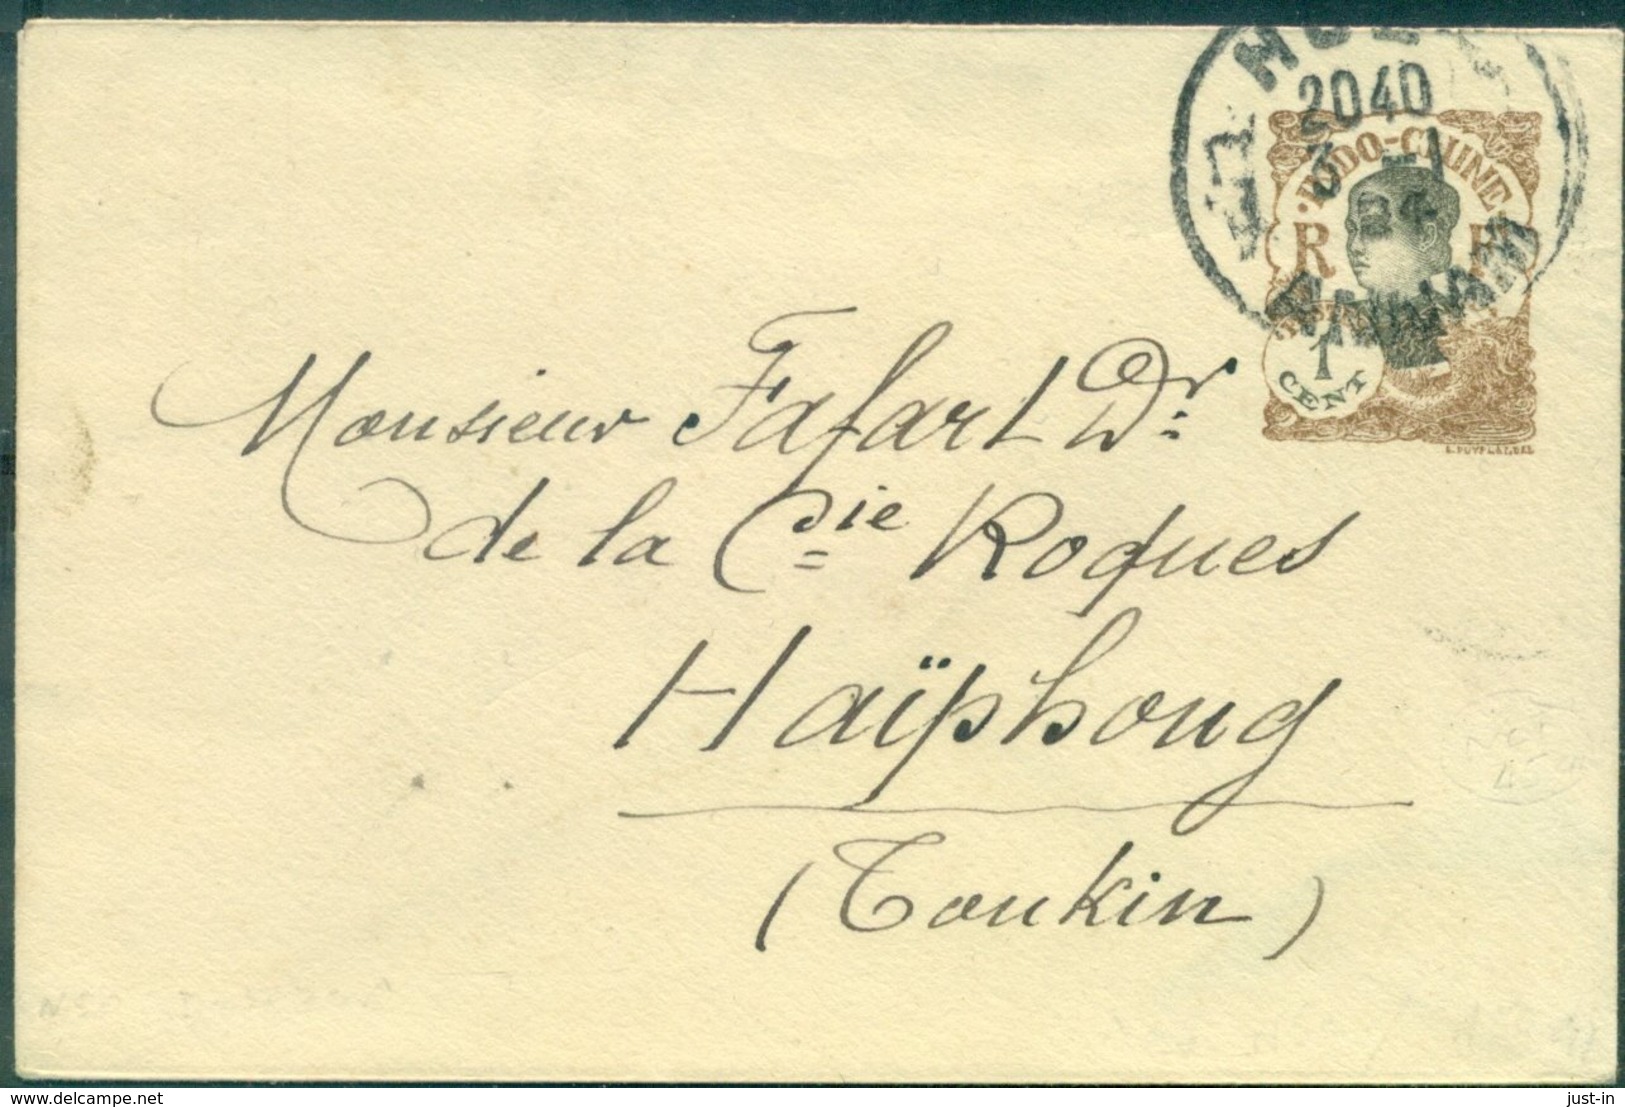 HUE
2040
3 1
24
ANNAM
INDO-CHINE
R F
1
CENT
Monsieur Fafart Dr
de la Cie Roques
Haïphong
(Tonkin)
www.delcampe.net
just-in